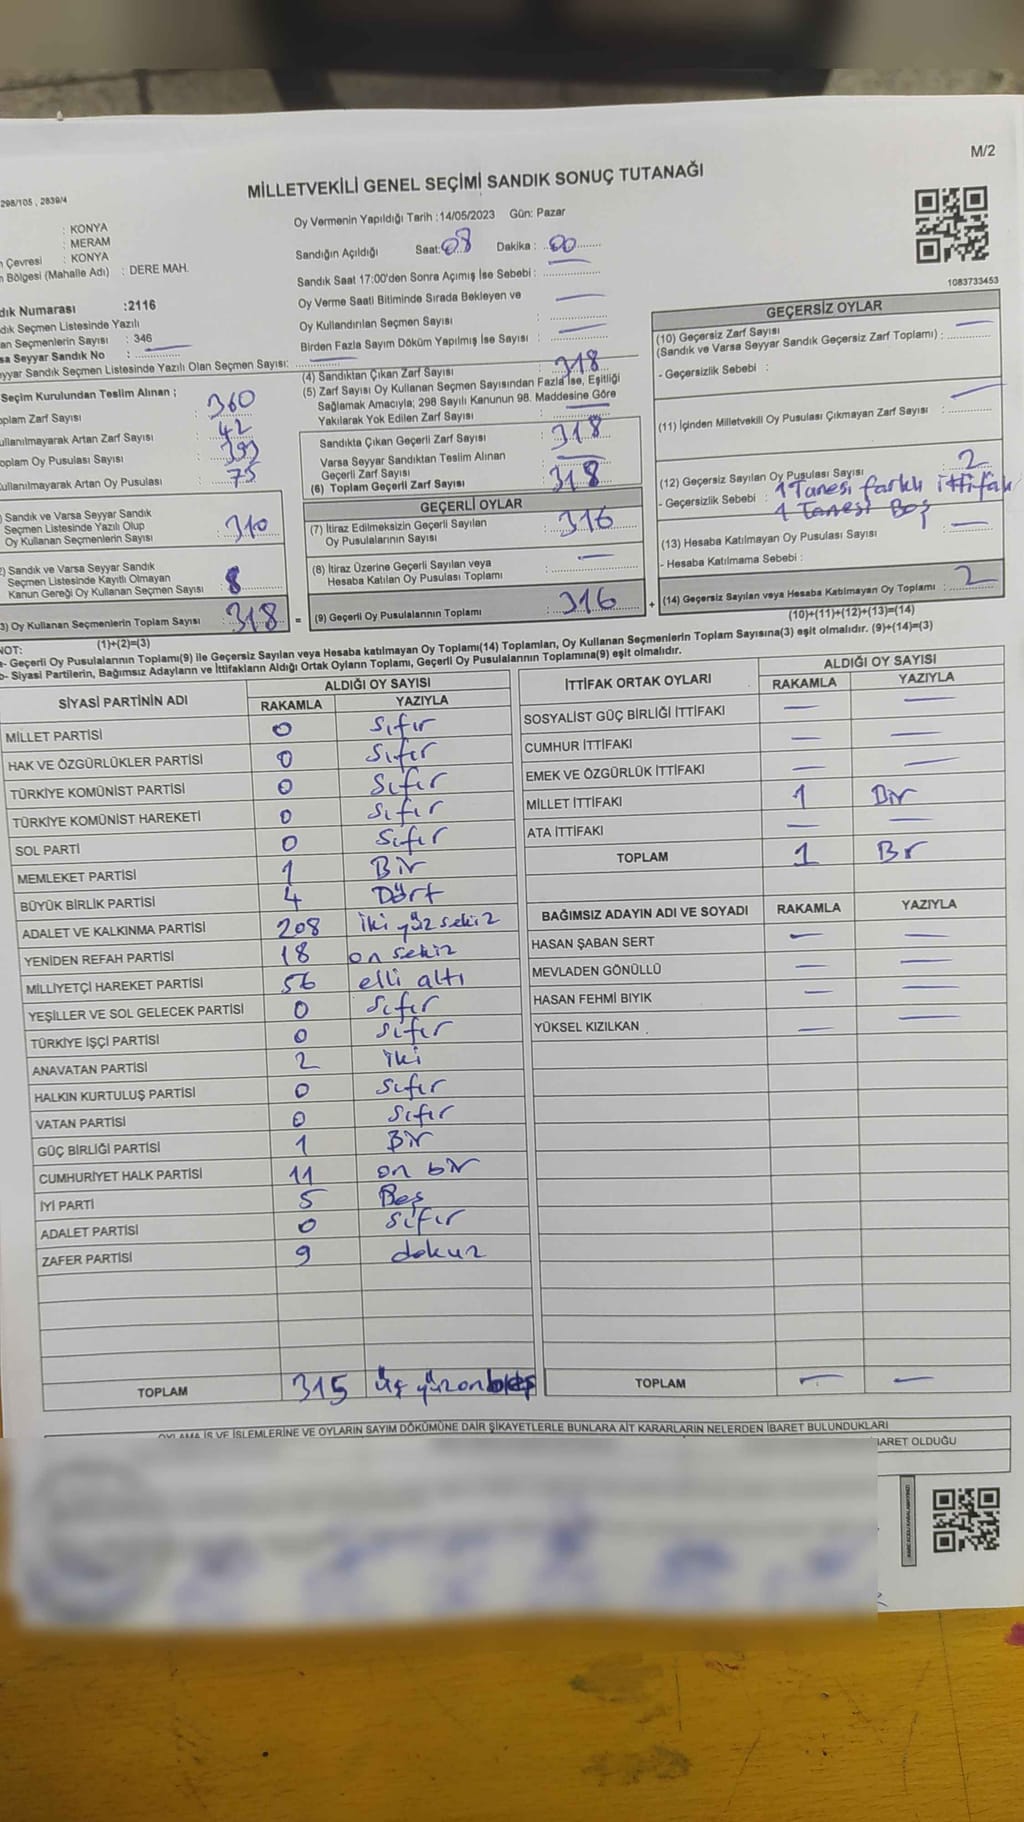 M/2
298/105 , 2839/4
MİLLETVEKİLİ GENEL SEÇİMİ SANDIK SONUÇ TUTANAĞI
: KONYA
: MERAM
Çevresi : KONYA
Bölgesi (Mahalle Adı) : DERE MAH.
Numarası :2116
Seçmen Listesinde Yazılı
Seçmenlerin Sayısı : 346
Seyyar Sandık No :
Seyyar Sandık Seçmen Listesinde Yazılı Olan Seçmen Sayısı:
Oy Vermenin Yapıldığı Tarih :14/05/2023 Gün: Pazar
Sandığın Açıldığı Saat: 08 Dakika : 00
Sandık Saat 17:00'den Sonra Açımış İse Sebebi :
Oy Verme Saati Bitiminde Sırada Bekleyen ve
Oy Kullandırılan Seçmen Sayısı :
Birden Fazla Sayım Döküm Yapılmış İse Sayısı :
1083733453
Seçim Kurulundan Teslim Alınan ;
Zarf Sayısı : 360
Artan Zarf Sayısı : 42
Oy Pusulası Sayısı : 393
Artan Oy Pusulası : 75
Sandık ve Varsa Seyyar Sandık
Seçmen Listesinde Yazılı Olup
Oy Kullanan Seçmenlerin Sayısı : 310
Sandık ve Varsa Seyyar Sandık
Seçmen Listesinde Kayıtlı Olmayan
Kanun Gereği Oy Kullanan Seçmen Sayısı : 8
3) Oy Kullanan Seçmenlerin Toplam Sayısı : 318
(1)+(2)=(3)
(4) Sandıktan Çıkan Zarf Sayısı : 318
(5) Zarf Sayısı Oy Kullanan Seçmen Sayısından Fazla İse, Eşitliği
Sağlamak Amacıyla; 298 Sayılı Kanunun 98. Maddesine Göre
Yakılarak Yok Edilen Zarf Sayısı :
Sandıkta Çıkan Geçerli Zarf Sayısı : 318
Varsa Seyyar Sandıktan Teslim Alınan
Geçerli Zarf Sayısı :
(6) Toplam Geçerli Zarf Sayısı : 318
GEÇERLİ OYLAR
(7) İtiraz Edilmeksizin Geçerli Sayılan
Oy Pusulalarının Sayısı : 316
(8) İtiraz Üzerine Geçerli Sayılan veya
Hesaba Katılan Oy Pusulası Toplamı :
= (9) Geçerli Oy Pusulalarının Toplamı : 316 +
GEÇERSİZ OYLAR
(10) Geçersiz Zarf Sayısı
(Sandık ve Varsa Seyyar Sandık Geçersiz Zarf Toplamı) :
- Geçersizlik Sebebi :
(11) İçinden Milletvekili Oy Pusulası Çıkmayan Zarf Sayısı :
(12) Geçersiz Sayılan Oy Pusulası Sayısı : 2
- Geçersizlik Sebebi : 1 Tanesi farklı ittifak
1 Tanesi Boş
(13) Hesaba Katılmayan Oy Pusulası Sayısı :
- Hesaba Katılmama Sebebi :
(14) Geçersiz Sayılan veya Hesaba Katılmayan Oy Toplamı : 2
(10)+(11)+(12)+(13)=(14)
NOT:
a- Geçerli Oy Pusulalarının Toplamı(9) ile Geçersiz Sayılan veya Hesaba katılmayan Oy Toplamı(14) Toplamları, Oy Kullanan Seçmenlerin Toplam Sayısına(3) eşit olmalıdır. (9)+(14)=(3)
b- Siyasi Partilerin, Bağımsız Adayların ve İttifakların Aldığı Ortak Oyların Toplamı, Geçerli Oy Pusulalarının Toplamına(9) eşit olmalıdır.
SİYASİ PARTİNİN ADI ALDIĞI OY SAYISI
RAKAMLA YAZIYLA
MİLLET PARTİSİ 0 Sıfır
HAK VE ÖZGÜRLÜKLER PARTİSİ 0 Sıfır
TÜRKİYE KOMÜNİST PARTİSİ 0 Sıfır
TÜRKİYE KOMÜNİST HAREKETİ 0 Sıfır
SOL PARTİ 0 Sıfır
MEMLEKET PARTİSİ 1 Bir
BÜYÜK BİRLİK PARTİSİ 4 Dört
ADALET VE KALKINMA PARTİSİ 208 iki yüz sekiz
YENİDEN REFAH PARTİSİ 18 on sekiz
MİLLİYETÇİ HAREKET PARTİSİ 56 elli altı
YEŞİLLER VE SOL GELECEK PARTİSİ 0 Sıfır
TÜRKİYE İŞÇİ PARTİSİ 0 Sıfır
ANAVATAN PARTİSİ 2 iki
HALKIN KURTULUŞ PARTİSİ 0 Sıfır
VATAN PARTİSİ 0 Sıfır
GÜÇ BİRLİĞİ PARTİSİ 1 Bir
CUMHURİYET HALK PARTİSİ 11 on bir
İYİ PARTİ 5 Beş
ADALET PARTİSİ 0 Sıfır
ZAFER PARTİSİ 9 dokuz
TOPLAM 315 üç yüz on beş
İTTİFAK ORTAK OYLARI ALDIĞI OY SAYISI
RAKAMLA YAZIYLA
SOSYALİST GÜÇ BİRLİĞİ İTTİFAKI
CUMHUR İTTİFAKI
EMEK VE ÖZGÜRLÜK İTTİFAKI
MİLLET İTTİFAKI 1 Bir
ATA İTTİFAKI
TOPLAM 1 Br
BAĞIMSIZ ADAYIN ADI VE SOYADI RAKAMLA YAZIYLA
HASAN ŞABAN SERT
MEVLADEN GÖNÜLLÜ
HASAN FEHMİ BIYIK
YÜKSEL KIZILKAN
TOPLAM
OYLAMA İŞ VE İŞLEMLERİNE VE OYLARIN SAYIM DÖKÜMÜNE DAİR ŞİKAYETLERLE BUNLARA AİT KARARLARIN NELERDEN İBARET BULUNDUKLARI
OLDUĞU